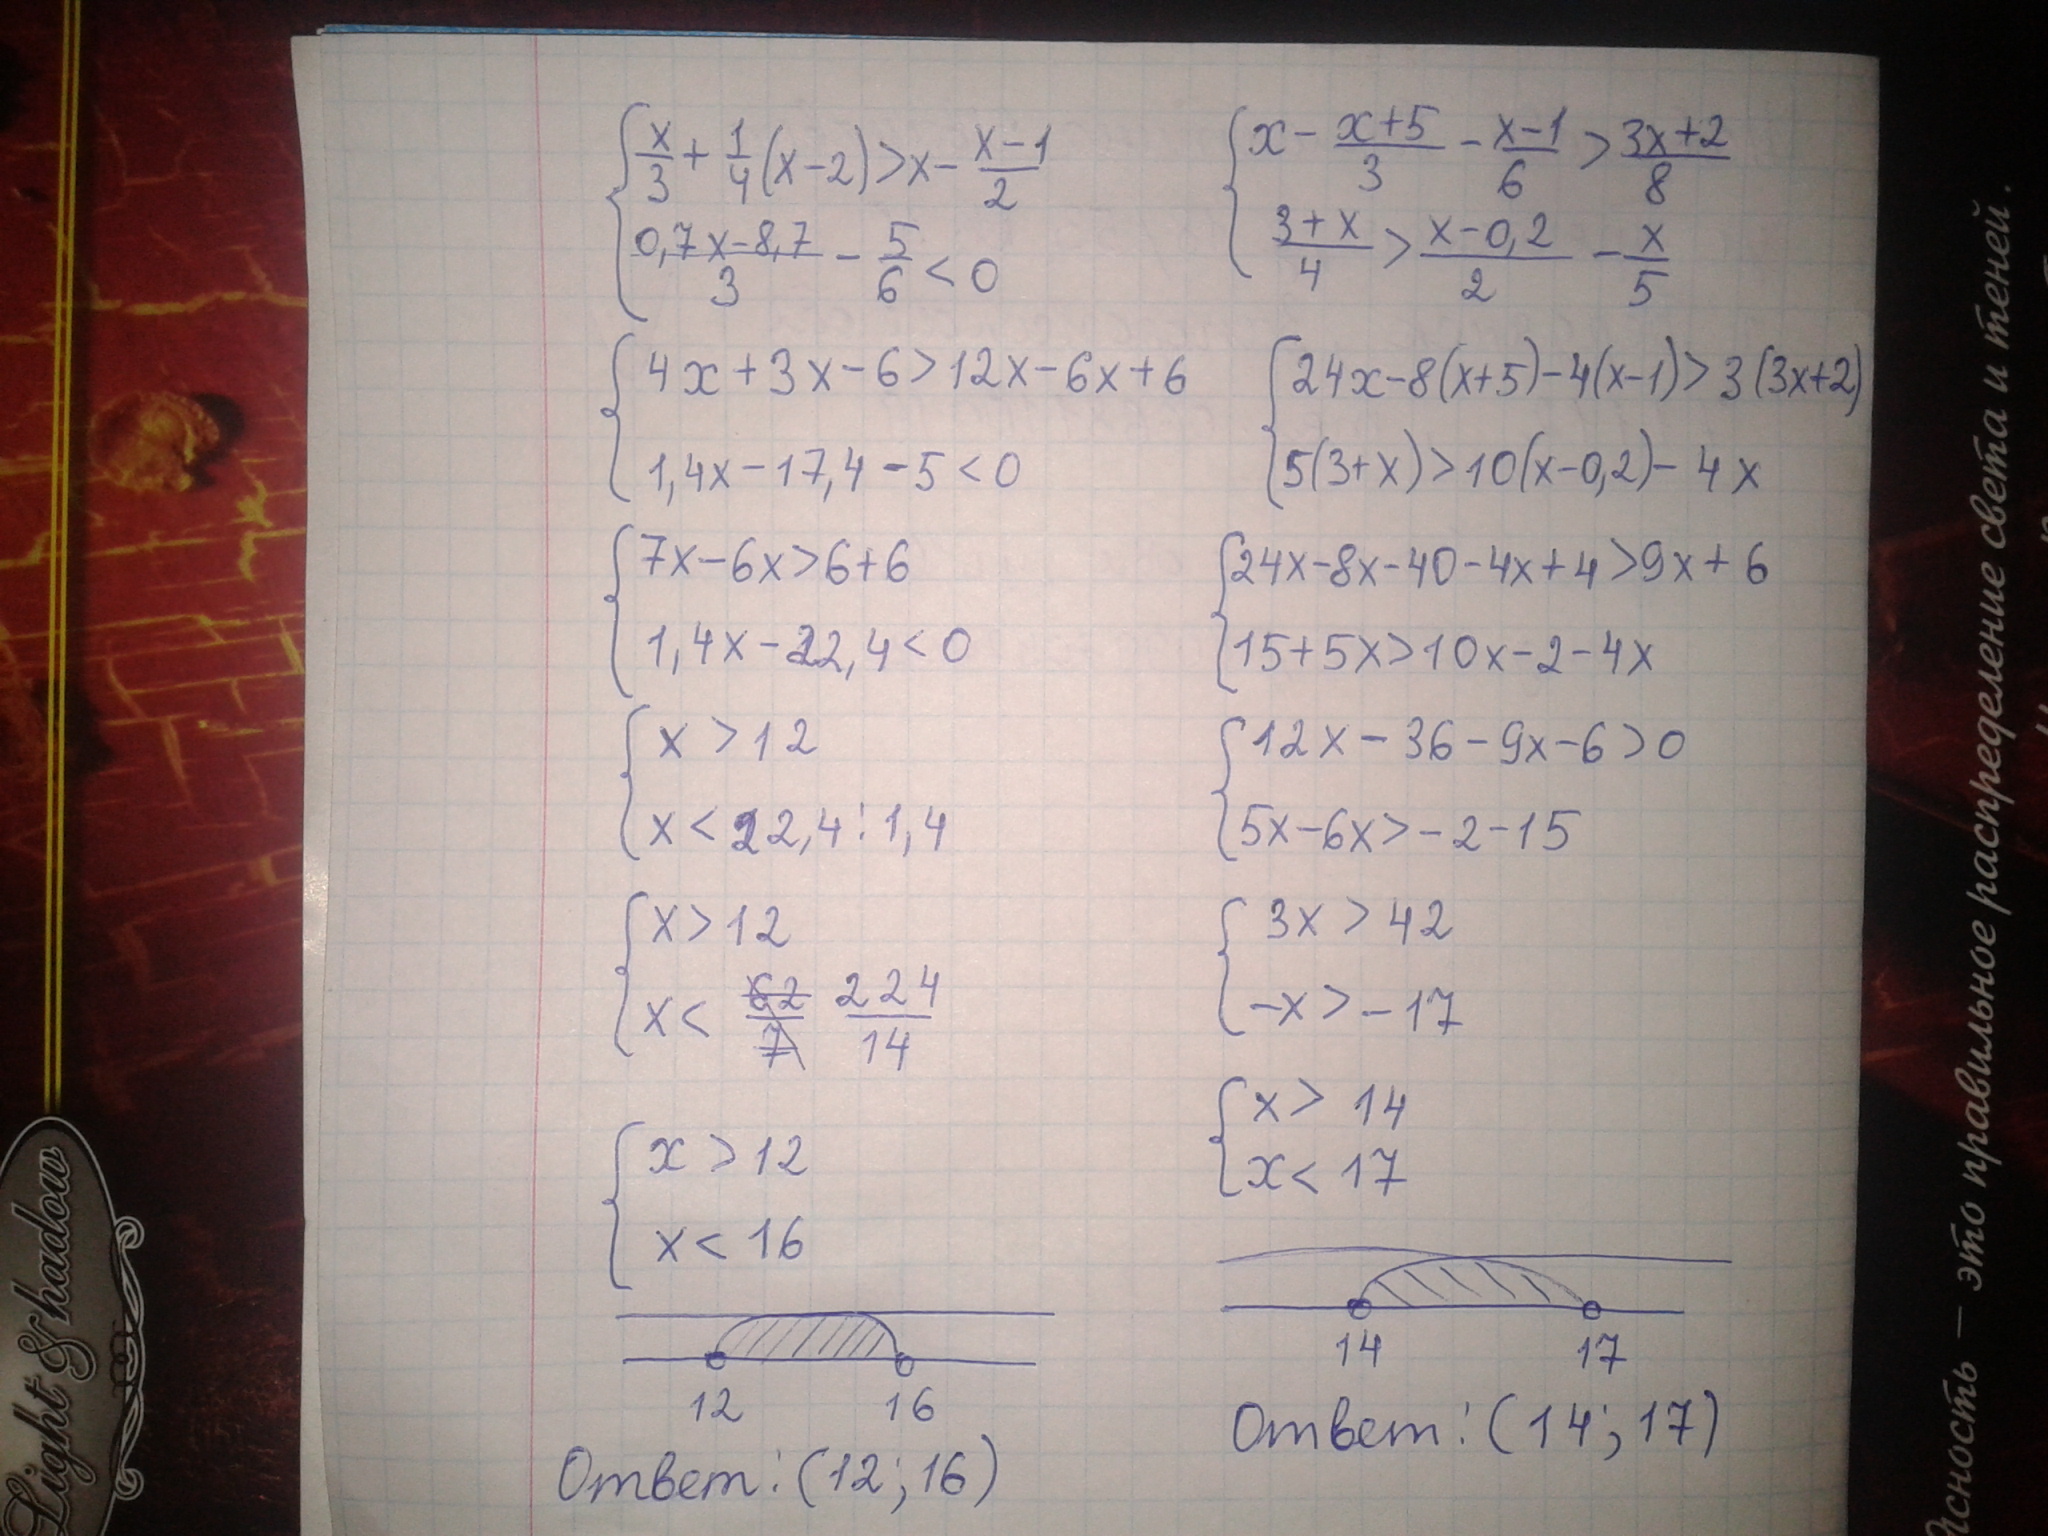 x/3 + 1/4(x-2) > x - (x-1)/2
(0,7x-8,7)/3 - 5/6 < 0
4x+3x-6>12x-6x+6
1,4x-17,4-5<0
7x-6x>6+6
1,4x-22,4<0
x>12
x<22,4:1,4
x>12
x< 224/14
x>12
x<16
12 16
Ответ: (12; 16)
x - (x+5)/3 - (x-1)/6 > (3x+2)/8
(3+x)/4 > (x-0,2)/2 - x/5
24x-8(x+5)-4(x-1)>3(3x+2)
5(3+x)>10(x-0,2)-4x
24x-8x-40-4x+4>9x+6
15+5x>10x-2-4x
12x-36-9x-6>0
5x-6x>-2-15
3x>42
-x>-17
x>14
x<17
14 17
Ответ: (14; 17)
Light & Shadow
– это правильное распределение света и теней.